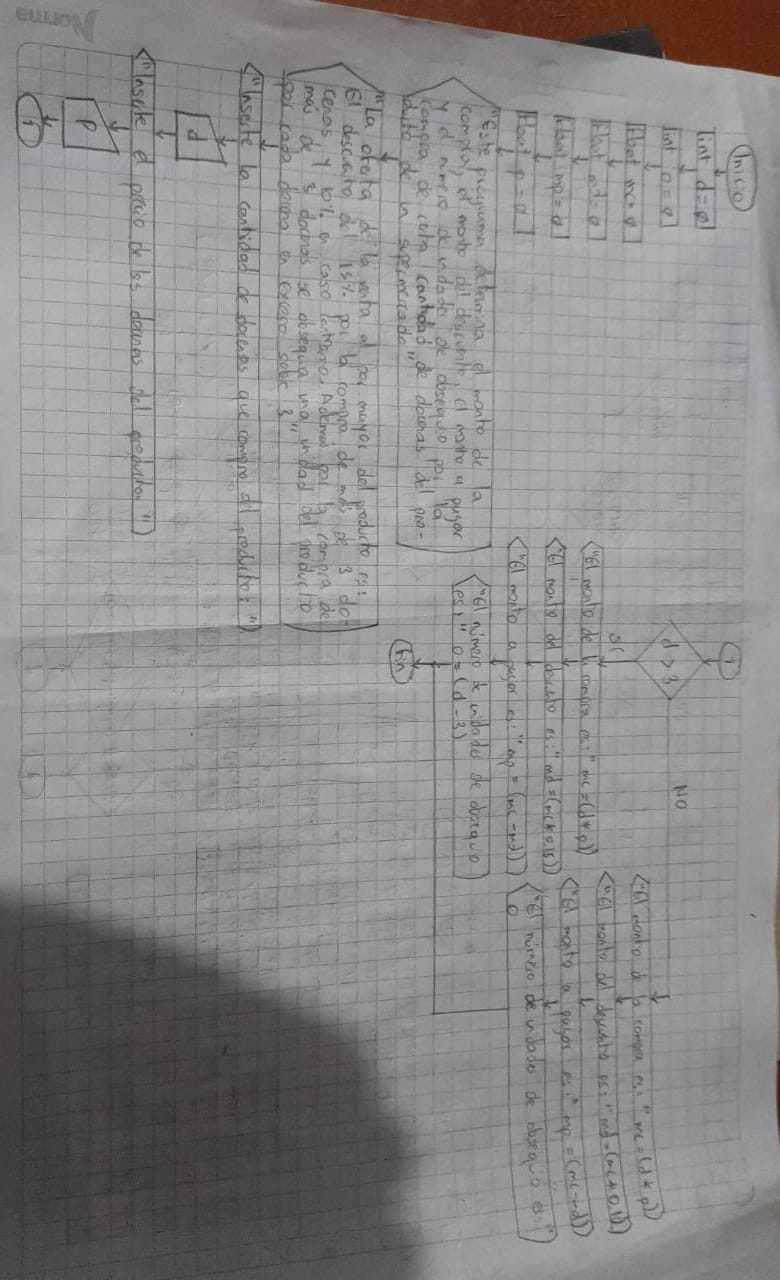 Inicio
int d=0
int o=0
float mc=0
float md=0
float mp=0
float p=0
"Este programa determina el monto de la
compra, el monto del descuento, el monto a pagar
y el número de unidades de obsequio por la
compra de cierta cantidad de docenas del pro-
ducto de un supermercado"
"La oferta de la venta al por mayor del producto es:
El descuento del 15% por la compra de más de 3 do-
cenas y 10% en caso contrario. Además por la compra de
más de 3 docenas se obsequia una unidad del producto
por cada docena en exceso sobre 3"
"Inserte la cantidad de docenas que compro del producto: "
d
"Inserte el precio de las docenas del producto: "
p
1
1
d > 3
NO
SI
"El monto de la compra es:" mc=(d*p)
"El monto del descuento es:" md=(mc*0.15)
"El monto a pagar es:" mp = (mc-md)
"El número de unidades de obsequio
es:" o=(d-3)
"El monto de la compra es:" mc=(d*p)
"El monto del descuento es:" md=(mc*0.1)
"El monto a pagar es:" mp =(mc-md)
"El número de unidades de obsequio es:"
0
Fin
Norma